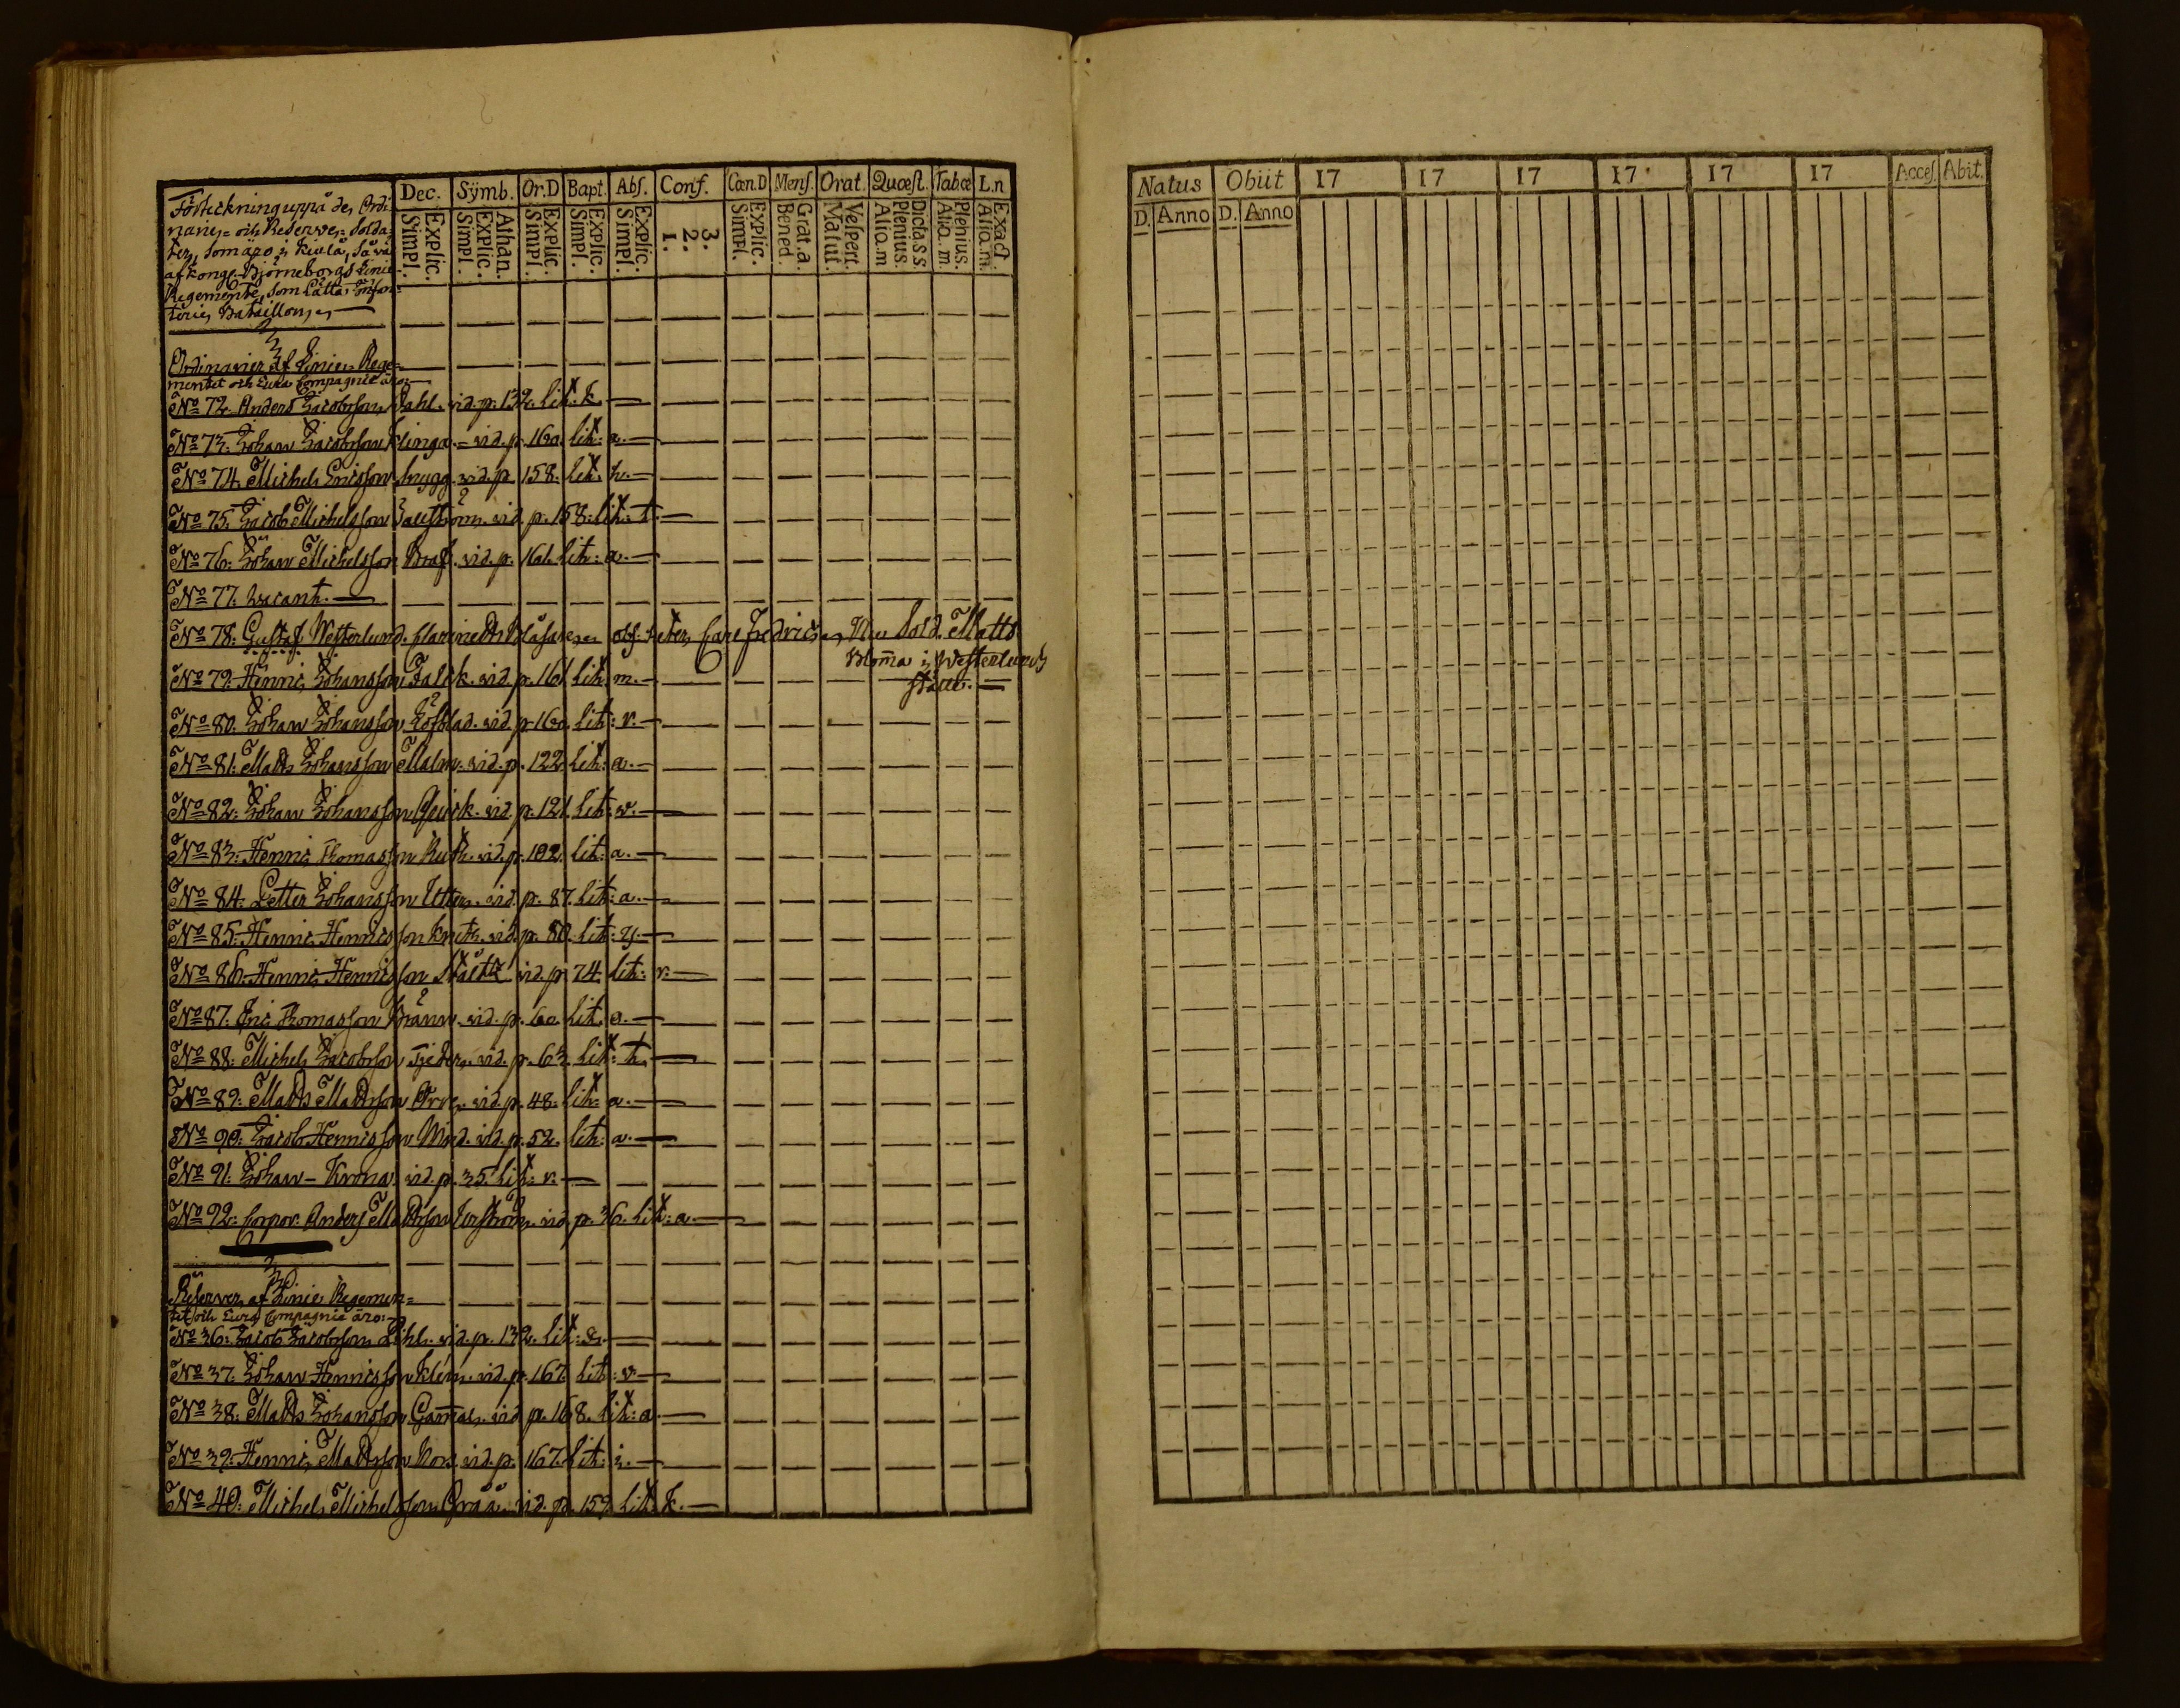 Förteckning uppå de Ordi-
narie- och Reserve- Solda-
ter, som äro i Kiulå, så väl
af Kongl. Björneborgs Linie
Regemente, som Lätta Infan-
terie Bataillon,
Dec. Sÿmb. Or.D Bapt. Abs. Conf. Cœn.D Mens. Orat. Quæst. Tabœ L.n
Explic. Simpl. Athan. Explic. Simpl. Explic. Simpl. Explic. Simpl. Explic. Simpl. 3. 2. 1. Explic. Simpl. Grat.a Bened. Vespert. Matut. Dicta S S. Plenius. Aliq.m Plenius. Aliq.m Exact Aliq.m
Ordinarier af Linie Rege-
mentet och Eura Compagnie äro:
No 72. Anders Jacobsson Dahl. vid. p. 132. lit: k.
No 73. Johan Jacobsson Klinga. vid. p. 160. lit: a.
No 74. Michel Ericsson Snygg. vid. p. 158. lit: h.
No 75. Jacob Michelsson vid. p. 158. lit: t.
No 76. Johan Michelsson Braf. vid. p. 161. lit: a.
No 77. Vacant.
No 78. Gustaf Westerlund. Clarinettblåsare Carl Fredric Nu Sold. Matts
Blom̄a i Westerlunds
ställe.
No 79. Henric Johansson Falck. vid. p. 161. lit: m.
No 80. Johan Johansson Löfblad. vid. p. 160. lit: v.
No 81. Matts Johansson Malm. vid. p. 122. lit: a.
No 82. Johan Johansson Qvick. vid. p. 121. lit: v.
No 83. Henric Thomasson Ruth. vid. p. 102. lit: a.
No 84. Petter Johansson Utter. vid. p. 87. lit: a.
No 85. Henric Henricsson vid. p. 80. lit: y.
No 86. Henric Henricsson vid. p. 74. lit: v.
No 87. Eric Thomasson Brånn. vid. p. 60. lit. a.
No 88. Michel Jacobsson Tjeder. vid. p. 63. lit: t.
No 89. Matts Mattsson Orre. vid. p. 48. lit: a.
No 90. Jacob Henricsson Wind. vid. p. 52. lit: a.
No 91. Johan - Krona. vid. p. 35. lit: v.
No 92. Corpor. Anders Mattsson vid. p. 36. lit: a.
Reserver af Linie Regemen-
tet och Eura Compagnie äro:
No 36. Jacob Jacobsson Pihl. vid. p. 132. lit: &.
No 37. Johan Henricsson Klein. vid. p. 167. lit: v.
No 38. Matts Johansson Gam̄al. vid. p. 168. lit: a.
No 39. Henric Mattsson Kors. vid. p. 167. lit: i.
No 40. Michel Michelsson Gråå. vid. p. 159. lit: k.
Natus Obiit 17 17 17 17 17 17 Acces. Abit.
D. Anno D. Anno